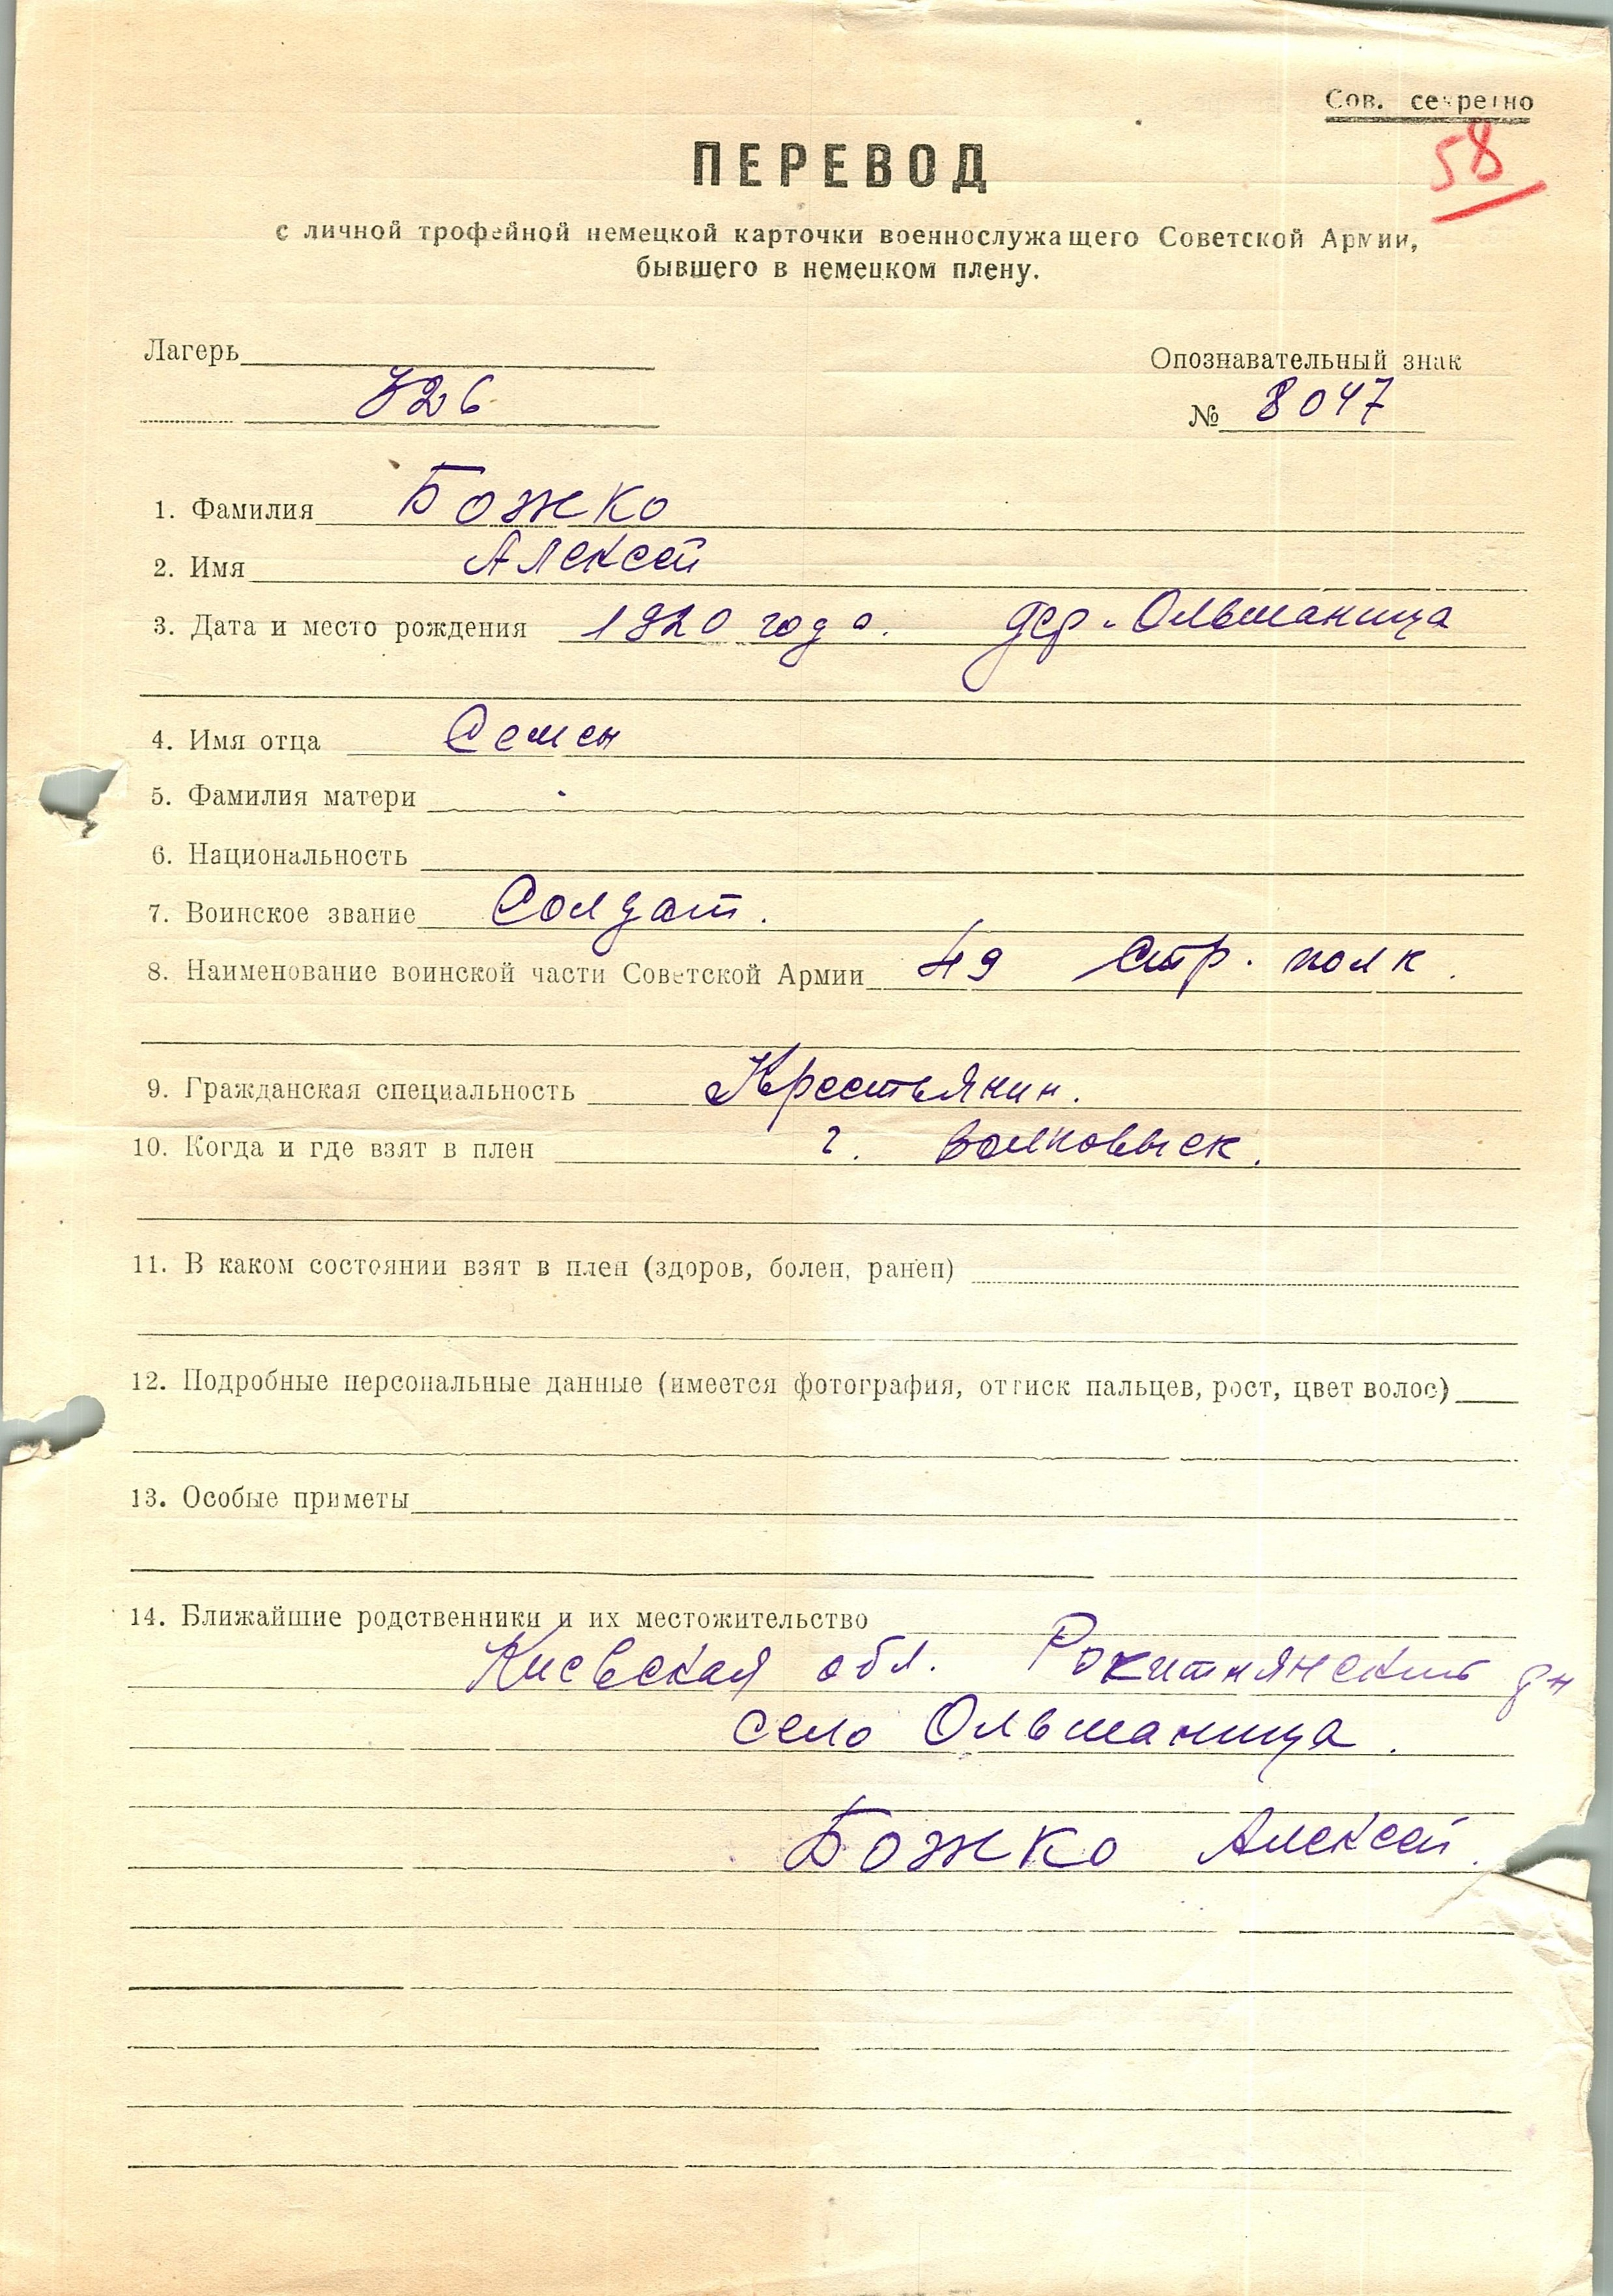 Сов. секретно
58
ПЕРЕВОД
с личной трофейной немецкой карточки военнослужащего Советской Армии,
бывшего в немецком плену.
Лагерь
326
Опознавательный знак
№ 8047
1. Фамилия Божко
2. Имя Алексей
3. Дата и место рождения 1920 года. дер. Ольшаница
4. Имя отца Семен
5. Фамилия матери
6. Национальность
7. Воинское звание Солдат.
8. Наименование воинской части Советской Армии 49 Стр. полк.
9. Гражданская специальность Крестьянин.
10. Когда и где взят в плен г. Волковыск.
11. В каком состоянии взят в плен (здоров, болен, ранен)
12. Подробные персональные данные (имеется фотография, оттиск пальцев, рост, цвет волос)
13. Особые приметы
14. Ближайшие родственники и их местожительство
Киевская обл. Рокитнянский рн
село Ольшаница.
Божко Алексей.